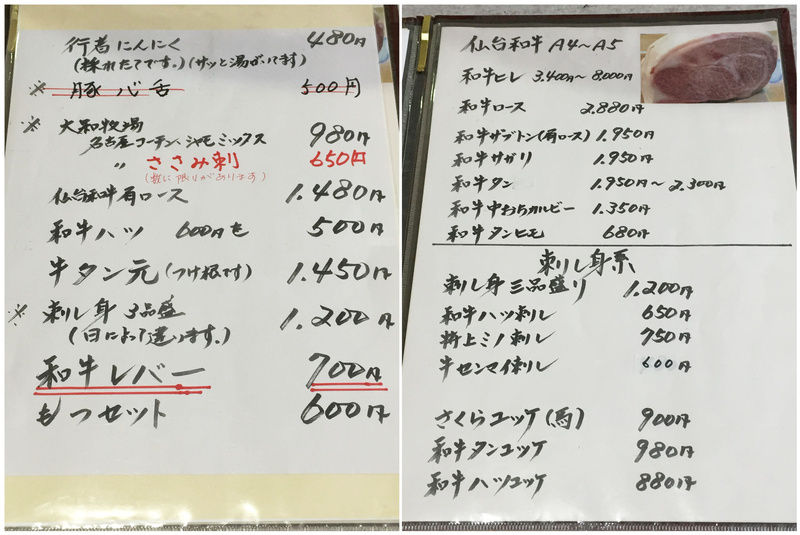 行者にんにく 480円
(採れたてです。)(サッと湯がいてます)
※ 豚ハ舌 500円
※ 大和牧場
名古屋コーチン、シャモミックス 980円
〃 ささみ刺 650円
(数に限りがあります)
仙台和牛肩ロース 1.480円
和牛ハツ 600円を 500円
牛タン元(つけ根です) 1.450円
※ 刺し身3品盛 1.200円
(日によって違います。)
和牛レバー 700円
もつセット 600円
仙台和牛 A4〜A5
和牛ヒレ 3.400円〜8,000円
和牛ロース 2.880円
和牛ザブトン(肩ロース) 1.950円
和牛サガリ 1.950円
和牛タン 1.950円〜2.300円
和牛中おちカルビー 1.350円
和牛タンヒモ 680円
刺し身系
刺し身三品盛り 1.200円
和牛ハツ刺し 650円
特上ミノ刺し 750円
牛センマイ刺し 600円
さくらユッケ(馬) 900円
和牛タンユッケ 980円
和牛ハツユッケ 880円